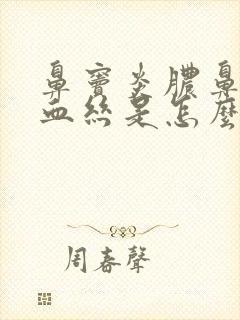 鼻竇炎膿鼻
血絲是怎麼
周春聲